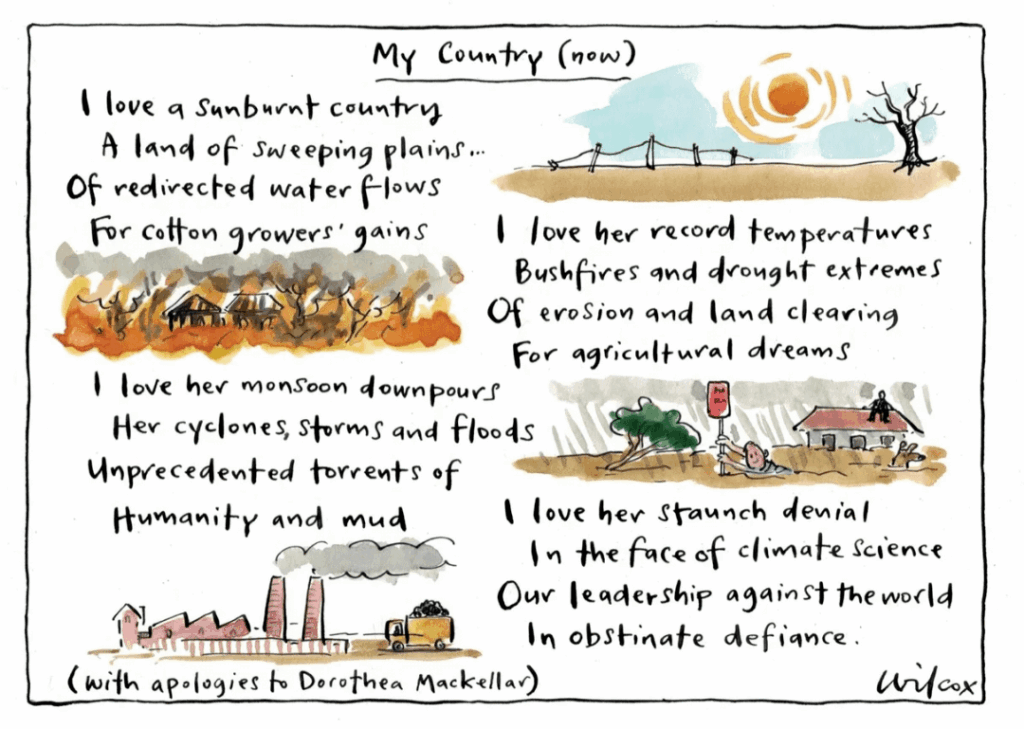 My Country (now)
I love a sunburnt country
A land of sweeping plains...
Of redirected water flows
For cotton growers' gains
I love her record temperatures
Bushfires and drought extremes
Of erosion and land clearing
For agricultural dreams
I love her monsoon downpours
Her cyclones, storms and floods
Unprecedented torrents of
Humanity and mud
I love her staunch denial
In the face of climate science
Our leadership against the world
In obstinate defiance.
(with apologies to Dorothea Mackellar)
Wilcox